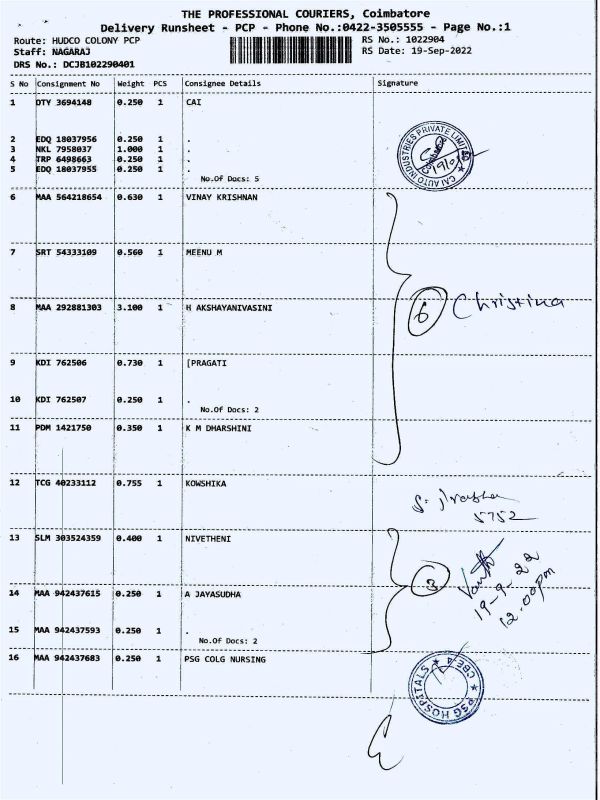 THE PROFESSIONAL COURIERS, Coimbatore
Delivery Runsheet - PCP - Phone No.:0422-3505555 - Page No.:1
Route: HUDCO COLONY PCP
RS No.: 1022904
Staff: NAGARAJ
RS Date: 19-Sep-2022
DRS No.: DCJB102290401
S No Consignment No Weight PCS Consignee Details Signature
1 DTY 3694148 0.250 1 CAI
2 EDQ 18037956 0.250 1 .
3 NKL 7958037 1.000 1 .
4 TRP 6498663 0.250 1 .
5 EDQ 18037955 0.250 1 .
No.Of Docs: 5
CAI AUTO INDUSTRIES PRIVATE LIMITED
6 MAA 564218654 0.630 1 VINAY KRISHNAN
7 SRT 54333109 0.560 1 MEENU M
8 MAA 292881303 3.100 1 H AKSHAYANIVASINI
6 Christina
9 KDI 762506 0.730 1 [PRAGATI
10 KDI 762507 0.250 1 .
No.Of Docs: 2
11 PDM 1421750 0.350 1 K M DHARSHINI
12 TCG 40233112 0.755 1 KOWSHIKA
5752
13 SLM 303524359 0.400 1 NIVETHENI
14 MAA 942437615 0.250 1 A JAYASUDHA
3
19-9-22
12.00pm
15 MAA 942437593 0.250 1 .
No.Of Docs: 2
16 MAA 942437683 0.250 1 PSG COLG NURSING
PSG HOSPITALS ★ CBE-4 ★